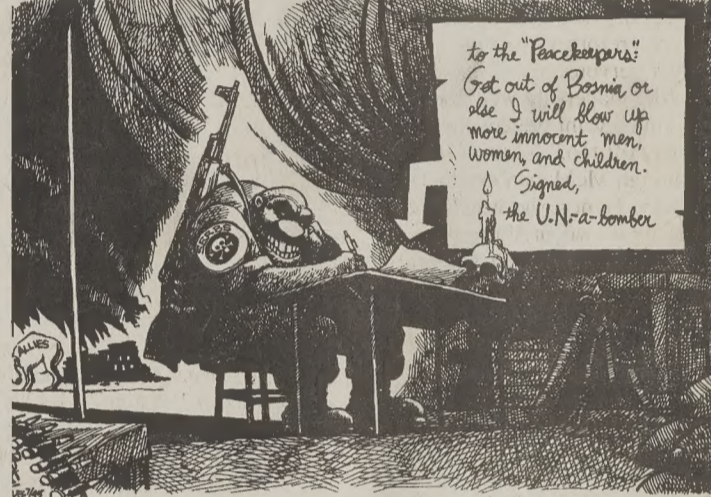 to the "Peacekeepers":
Get out of Bosnia or
else I will blow up
more innocent men,
women, and children.
Signed,
the U.N.-a-bomber
SERBS
ALLIES